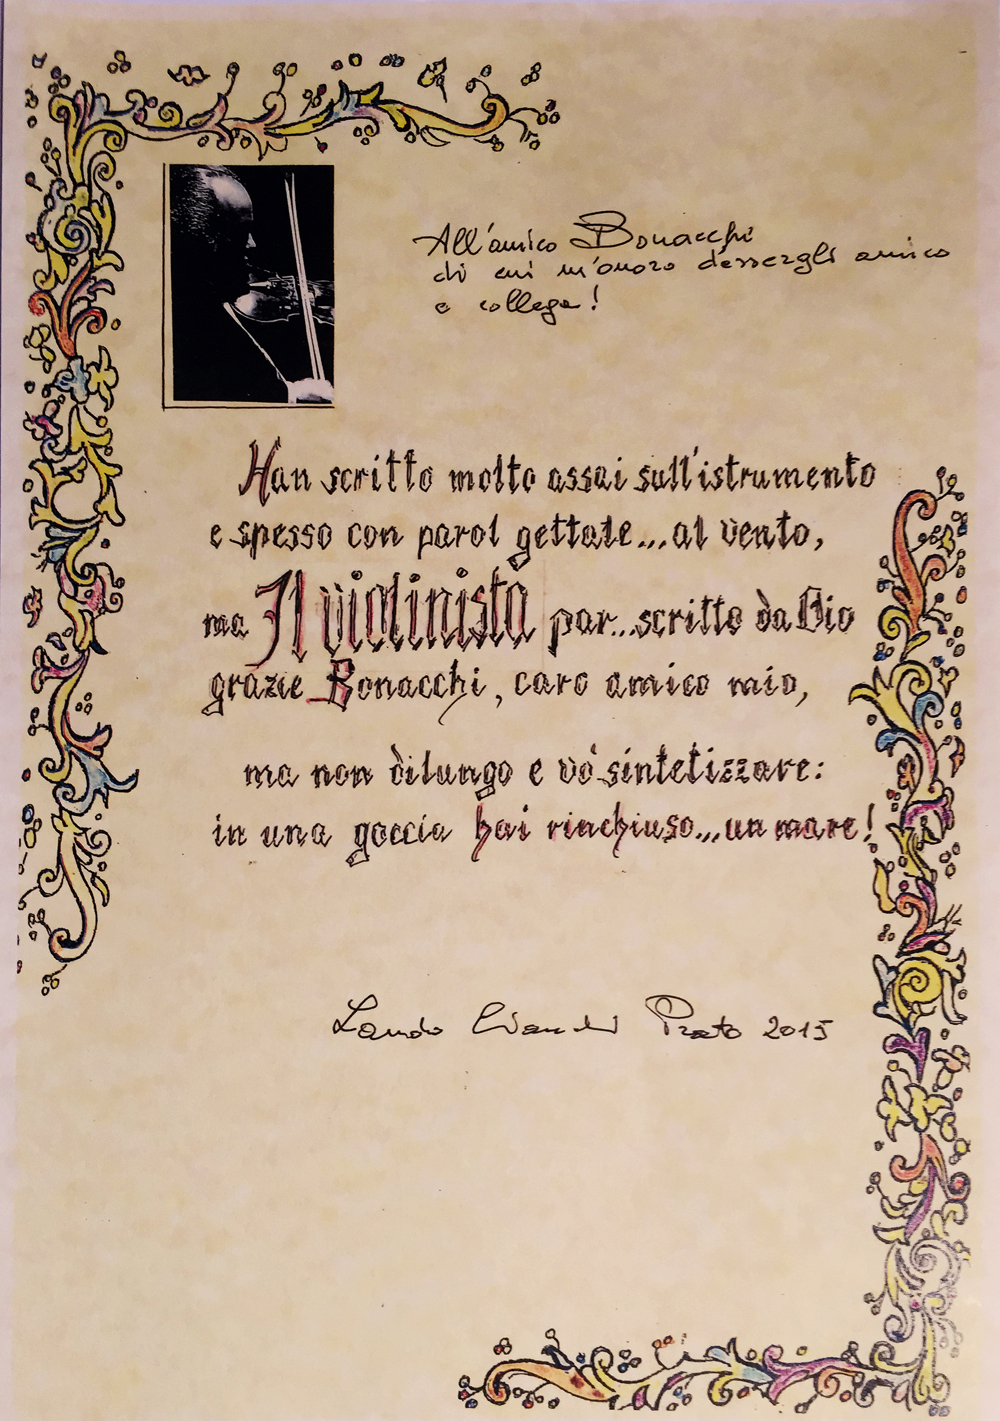 All'amico Bonacchi
di cui m'onoro d'essergli amico
e collega!
Han scritto molto assai sull'istrumento
e spesso con parol gettate...al vento,
ma Il violinista par...scritto da Dio
grazie Bonacchi, caro amico mio,
ma non dilungo e vò sintetizzare:
in una goccia hai rinchiuso...un mare!
Lando Prato 2015